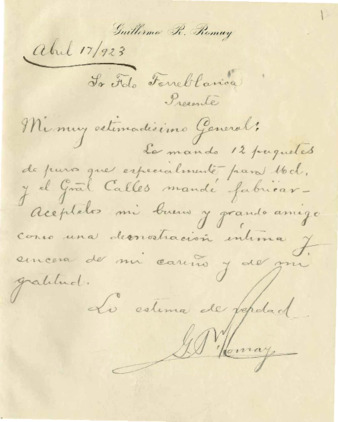 1
Guillermo R. Romay
Abril 17/923
Sr Fdo Torreblanca
Presente
Mi muy estimadísimo General:
Le mando 12 paquetes
de puro que especialmente para Ud.
y el Gral Calles mandé fabricar-
Aceptelos mi bueno y grande amigo
como una demostración íntima y
sincera de mi cariño y de mi
gratitud.
Lo estima de verdad
G R Romay